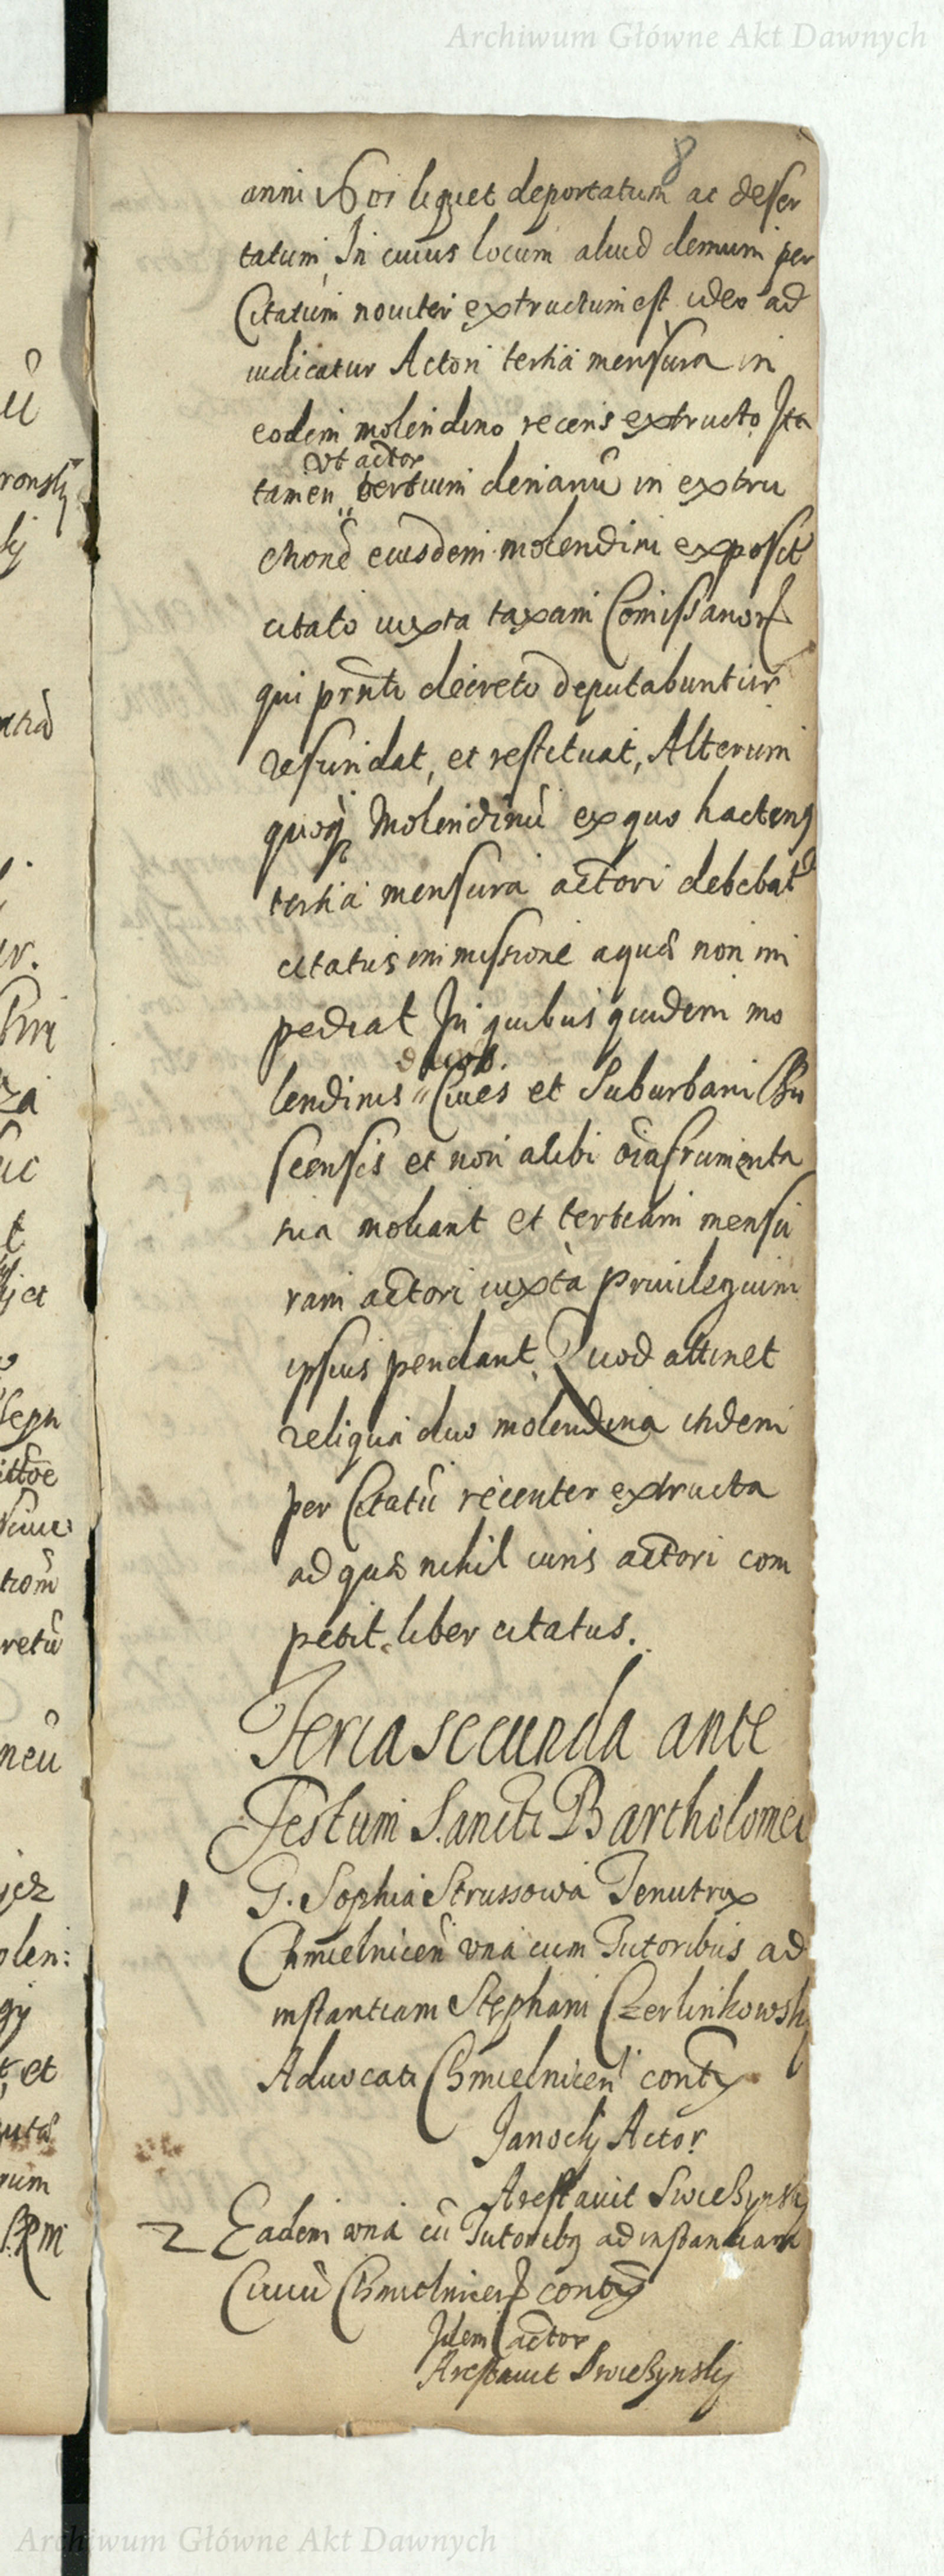 Archiwum Główne Akt Dawnych
8
anni liquet deportatum ac deser
tatum, In cuius locum aliud demum per
Citatum noviter extructum est ideo ad
iudicatur Actori tertia mensura in
eodem molendino recens extructo, Ita
vt actor
tamen tertium denariũ in extru
ctione eiusdem molendini exposit
citato iuxta taxam Comissarior
qui prñti decreto deputabuntur
refundat, et restituat, Alterum
quoq Molendinũ ex quo hactenq
tertia mensura actori debebat
citatus immissione aquã non im
pediat In quibus quidem mo
duob.
lendinis Ciues et Suburbani Bu
scensis et non alibi oĩa frumenta
sua moliant et tertiam mensu
ram actori iuxta priuilegium
ipsius pendant, Quod attinet
reliqua duo molendina itidem
per Citatũ recenter extructa
ad quã nihil iuris actori com
petit, liber citatus.
Feria secunda ante
Festum Sancti Bartholomei
1 G. Sophia Strussowa Tenutrix
Chmielniceñ vna cum Tutoribus ad
instantiam Stephani Czerlinkowsky
Aduocati Chmielniceñ cont
Actor
Arestauit Swieszynsky
2 Eadem vna cũ Tutoribq ad instantiam
Ciuiũ Chmielnicen cont
Idem actor
Arestauit Swieszynsky
Archiwum Główne Akt Dawnych